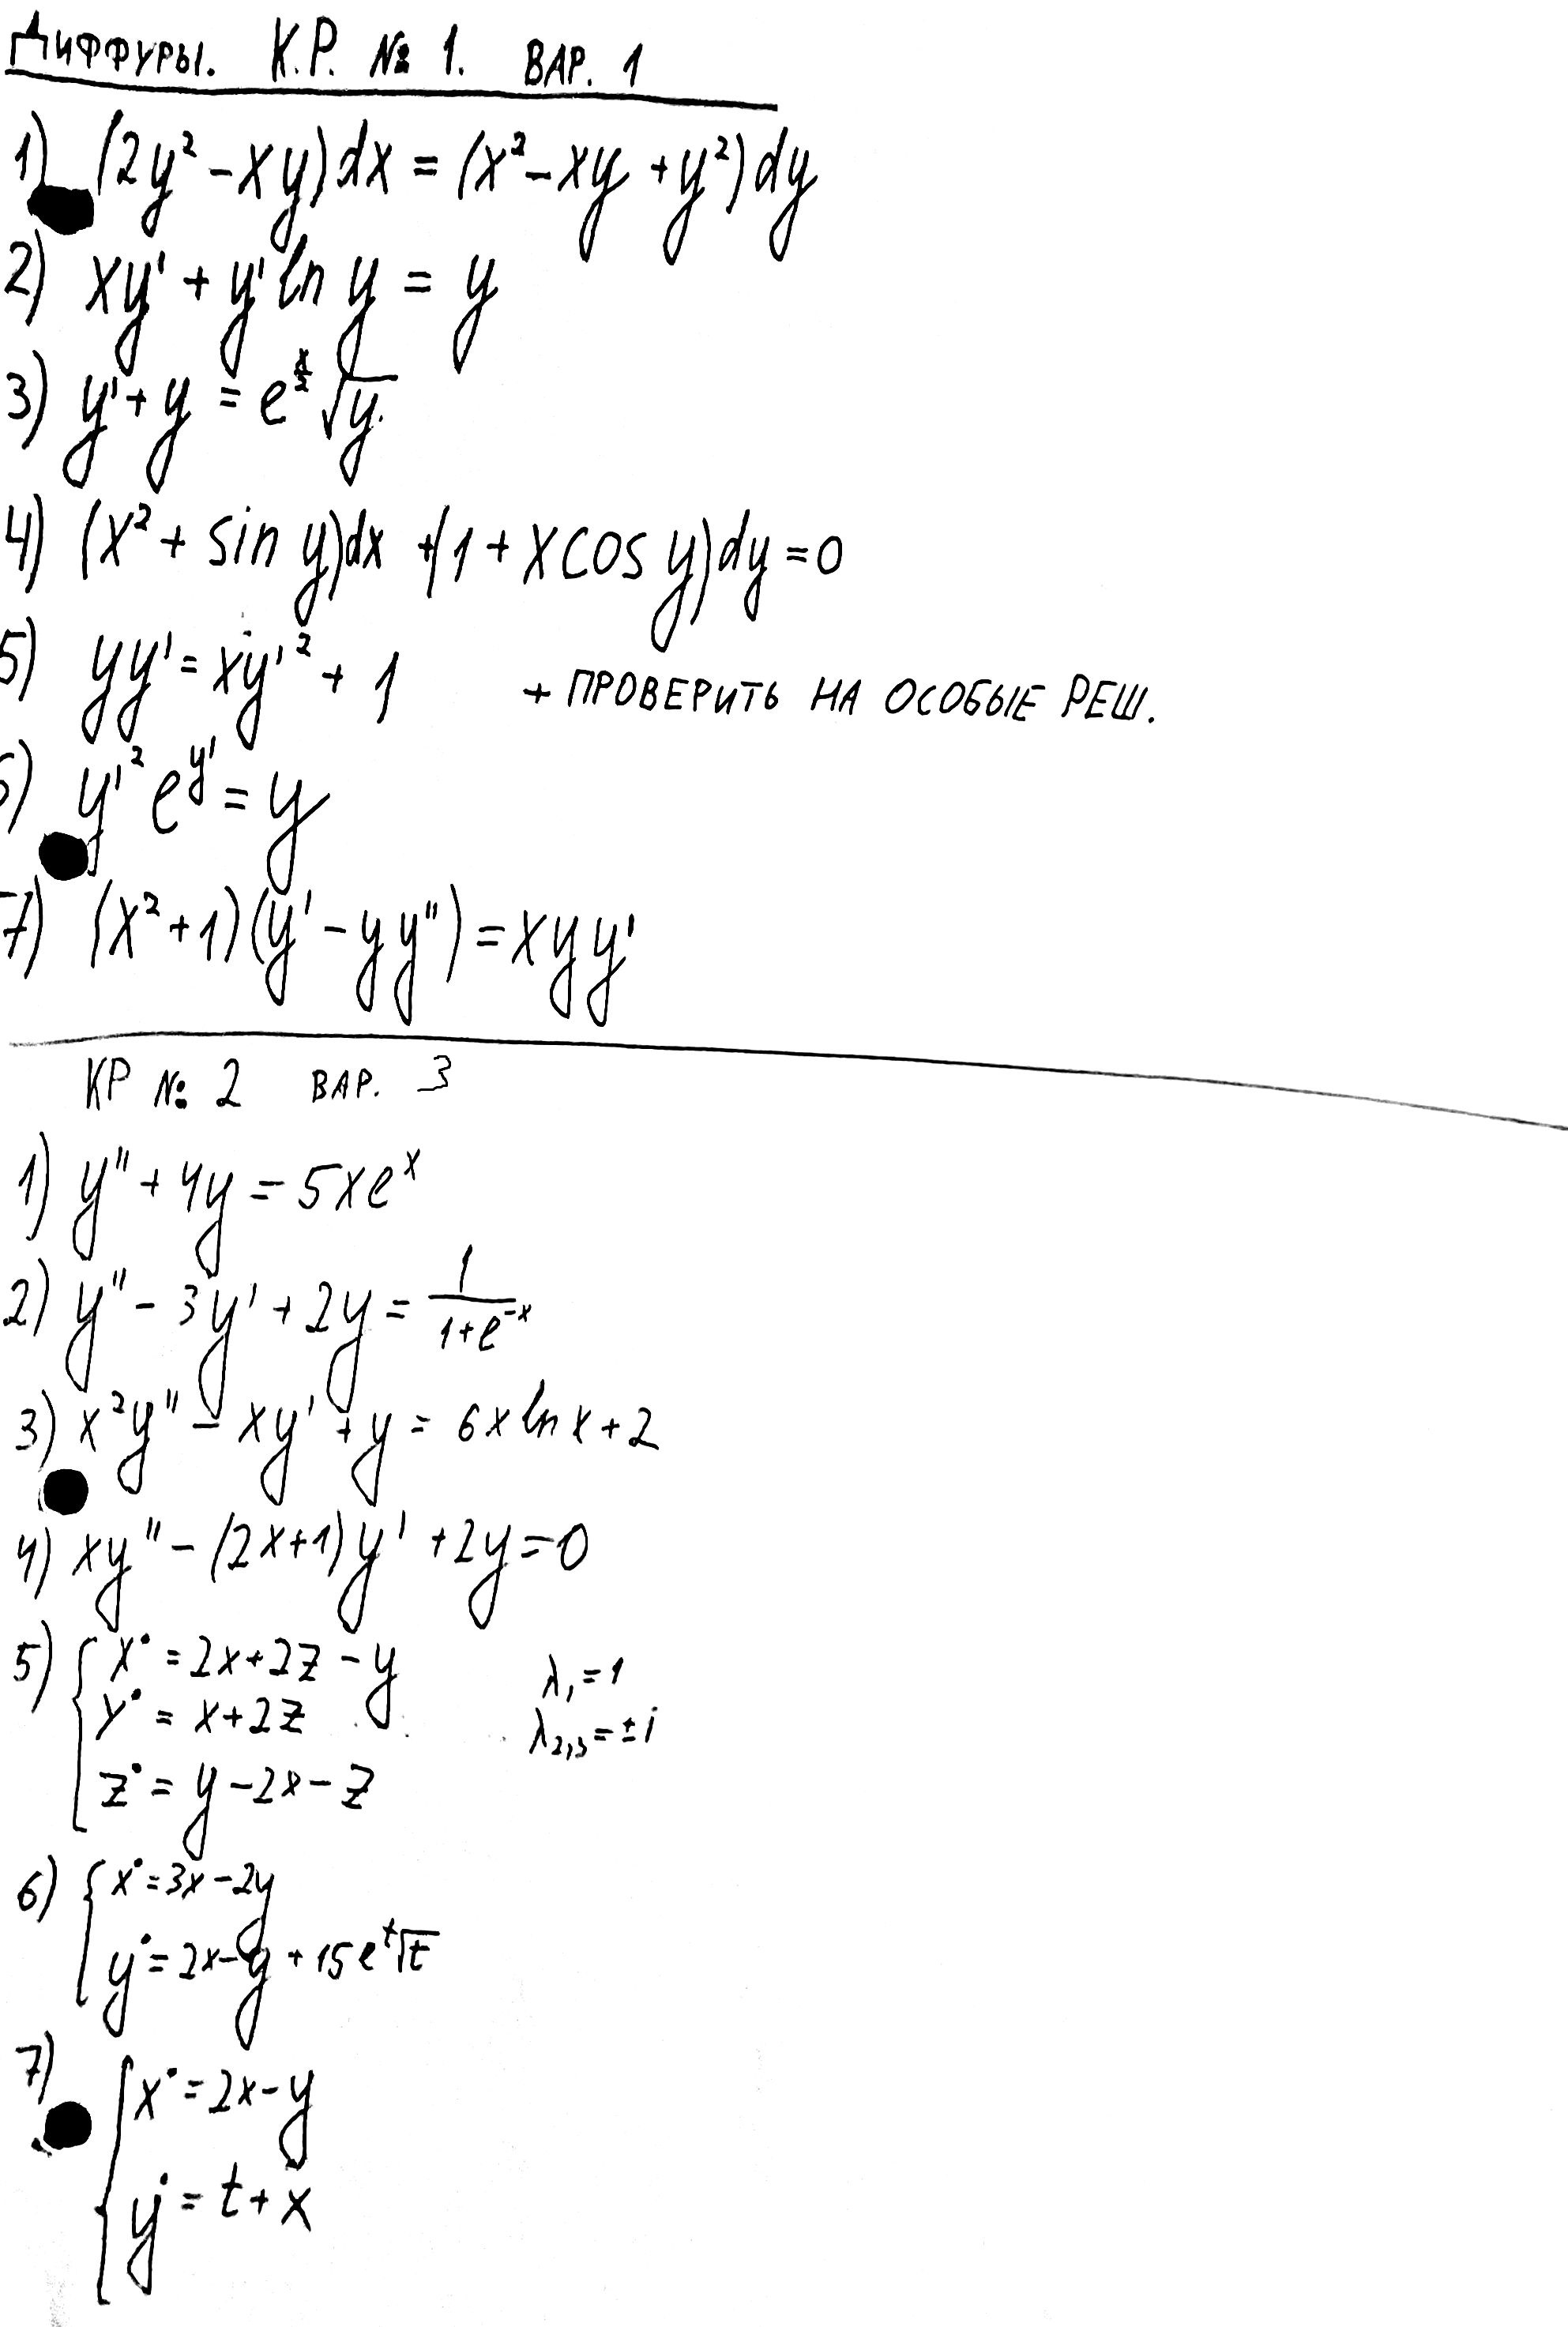 Диффуры. К.Р. № 1. ВАР. 1
1) (2y² - xy)dx = (x² - xy + y²)dy
2) xy' + y' ln y = y
3) y' + y = e^(x/2) √y
4) (x² + sin y)dx + (1 + x cos y)dy = 0
5) yy' = xy'² + 1 + ПРОВЕРИТЬ НА ОСОБЫЕ РЕШ.
6) y'² e^y' = y
7) (x² + 1)(y' - yy'') = xyy'
КР № 2 ВАР. 3
1) y'' + 4y = 5xe^x
2) y'' - 3y' + 2y = 1/(1 + e^-x)
3) x²y'' - xy' + y = 6x ln x + 2
4) xy'' - (2x+1)y' + 2y = 0
5) { x˙ = 2x + 2z - y λ₁ = 1
y˙ = x + 2z λ₂,₃ = ± i
z˙ = y - 2x - z
6) { x˙ = 3x - 2y
y˙ = 2x - y + 15e^t √t
7) { x˙ = 2x - y
y˙ = t + x